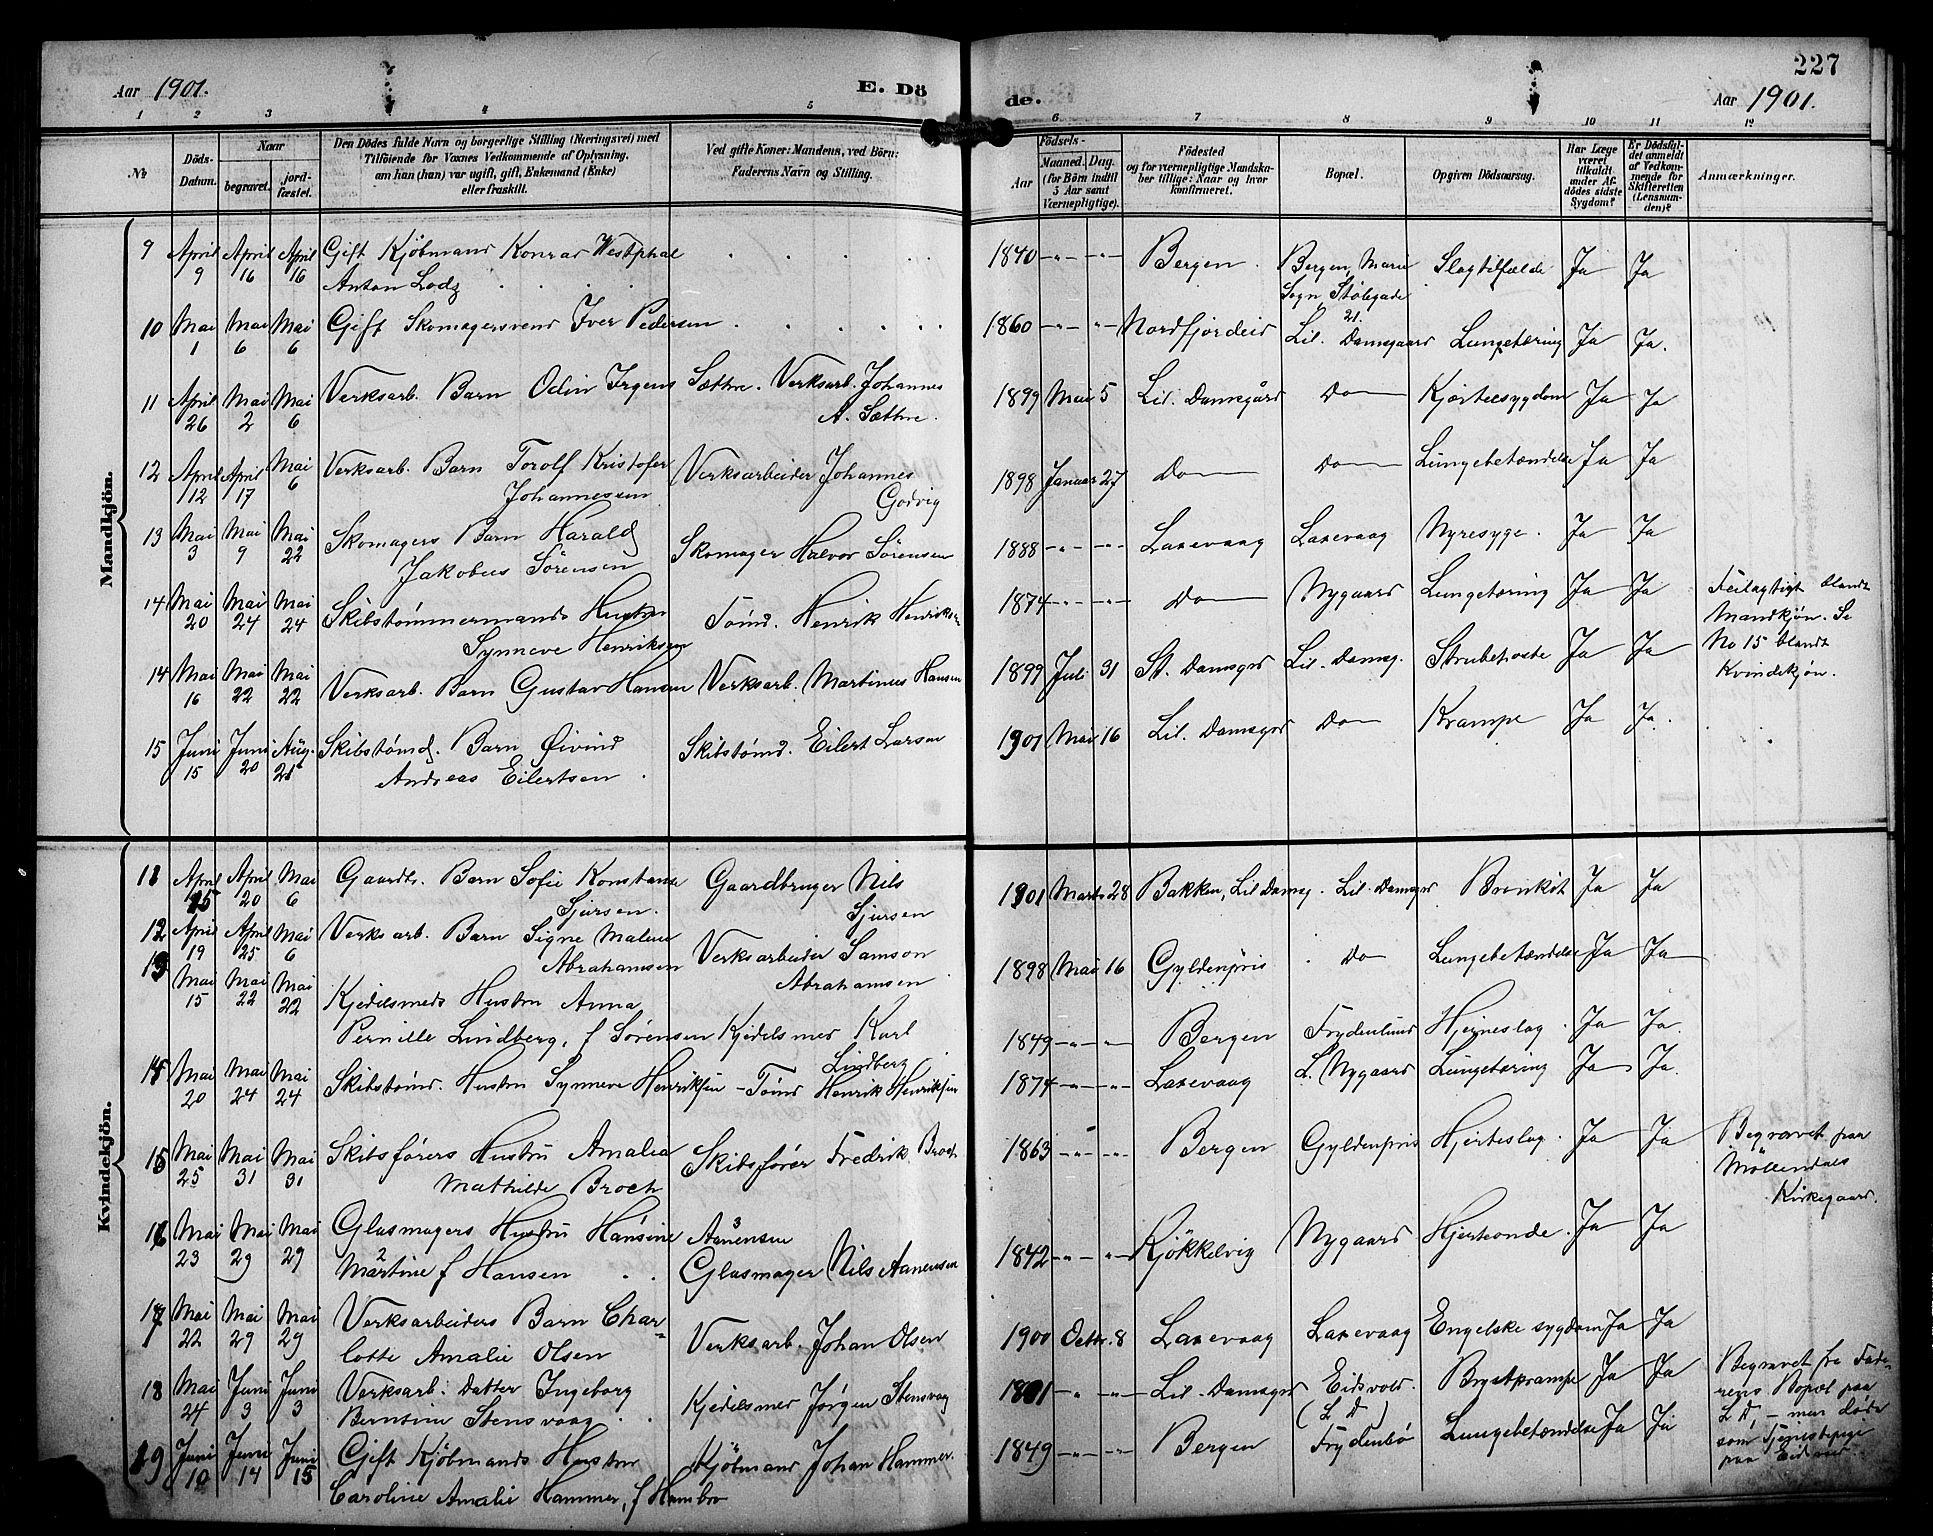 227
Aar 1901. E. Dö de. Aar 1901.
1 2 3 4 5 6 7 8 9 10 11 12
№ Döds-Datum. Naar begravet. jordfæstet. Den Dödes fulde Navn og borgerlige Stilling (Næringsvei) med Tilföiende for Voxnes Vedkommende af Oplysning, om han (hun) var ugift, gift, Enkemand (Enke) eller fraskilt. Ved gifte Koner: Mandens, ved Börn: Faderens Navn og Stilling. Födsels- Aar Maaned. Dag. (for Börn indtil 5 Aar samt Værnepligtige). Födested og for værnepligtige Mandskaber tillige: Naar og hvor konfirmeret. Bopæl. Opgiven Dödsaarsag. Har Læge været tilkaldt under Afdödes sidste Sygdom? Er Dödsfaldet anmeldt af Vedkommende for Skifteretten (Lensmanden)? Anmærkninger.
Mandkjön.
9 April 9 April 16 April 16 Gift Kjöbmand Konrad Westphal 1840 -"- -"- Bergen. Bergen, Marie Slagtilfælde Ja Ja
Anton Lodz Sogn, Stölegade 21.
10 Mai 1 Mai 6 Mai 6 Gift Skomagersvend Iver Pedersen 1860 -"- -"- Nordfjordeid Lil. Damsgaard Lungetæring Ja Ja.
11 April 26 Mai 2 Mai 6 Verksarb. Barn Odin Irgens Sættre. Verksarb. Johannes 1899 Mai 5 Lil. Damsgård Do Kjertelsygdom Ja Ja
A. Sættre.
12 April 12 April 17 Mai 6 Verksarb. Barn Torolf Kristofer Verksarbeider Johannes 1898 Januar 27 Do Do Lungebetændelse Ja Ja
Johannessen Godvig
13 Mai 3 Mai 9 Mai 22 Skomagers Barn Harald Skomager Halvor Sörensen 1888 -"- -"- Laxevaag Laxevaag Nyresyge. Ja Ja
Jakobus Sörensen
14 Mai 20 Mai 24 Mai 24 Skibstømmermands Hustru Tømd. Henrik Henriksen 1874 -"- -"- Do Nygaard Lungetæring Ja Ja Feilagtigt blandt
Synneve Henriksen Mandkjøn. Se
No 15 blandt
Kvindekjøn.
14 Mai 16 Mai 22 Mai 22 Verksarb. Barn Gustav Hansen Verksarb. Martinus Hansen 1899 Juli 31 St. Damsgrd Lil. Damsg. Strubehoste Ja Ja
15 Juni 15 Juni 20 Aug. 21 Skibstømd. Barn Øivind Skibstømd. Eilert Larsen 1901 Mai 16 Lil. Damsgrd Do Krampe Ja Ja.
Andreas Eilertsen
Kvindekjön.
11 April 15 April 20 Mai 6 Gaardbr. Barn Sofie Konstanse Gaardbruger Nils 1901 Marts 28 Bakken, Lil Damsg. Lil. Damsgrd Bronkit Ja Ja
Sjursen. Sjursen
12 April 19 April 25 Mai 6 Verksarb. Barn Signe Malene Verksarbeider Samson 1898 Mai 16 Gyldenpris Do Lungebetændelse Ja Ja
Abrahamsen Abrahamsen
13 Mai 15 Mai 22 Mai 22 Kjedelsmeds Hustru Anna
Pernille Lindberg, f Sørensen Kjedelsmed Karl 1849 -"- -"- Bergen Frydenlund Hjerneslag. Ja Ja.
Lindberg
15 Mai 20 Mai 24 Mai 24 Skibstømd. Hustru Synneve Henriksen - Tømd Henrik Henriksen 1874 -"- -"- Laxevaag L. Nygaard Lungetæring Ja Ja.
15 Mai 25 Mai 31 Mai 31 Skibsførers Hustru Amalia Skibsfører Fredrik Broch 1863 -"- -"- Bergen Gyldenpris Hjerteslag. Ja Ja Begravet paa
Mathilde Broch Möllendals
Kirkegaard.
16 Mai 23 Mai 29 Mai 29 Glasmagers Hustru Hansine Aånensen
Martine f Hansen Glasmager Nils Aanensen 1842 -"- -"- Kjökkelvig Nygaard Hjerteonde. Ja Ja
17 Mai 22 Mai 29 Mai 29 Verksarbeiders Barn Char-
lotte Amalie Olsen Verksarb. Johan Olsen 1900 Octbr. 8 Laxevaag Laxevaag Engelske sygdom Ja Ja
18 Mai 24 Juni 3 Juni 3 Verksarb. Datter Ingeborg Kjedelsmed Jørgen Stensvaag 1881 -"- -"- Lil. Damsgrd Eidsvold. Brystkrampe Ja Ja Begravet fra Fade-
Berntine Stensvaag (L D) rens Bopæl paa
L D, - men døde
som Tjenestepige
paa Eidsvold.
19 Juni 10 Juni 14 Juni 15 Gift Kjöbmands Hustru Kjöbmand Johan Hammer. 1849 -"- -"- Bergen Frydenbø Lungebetændelse Ja Ja
Caroline Amalie Hammer, f Hambro